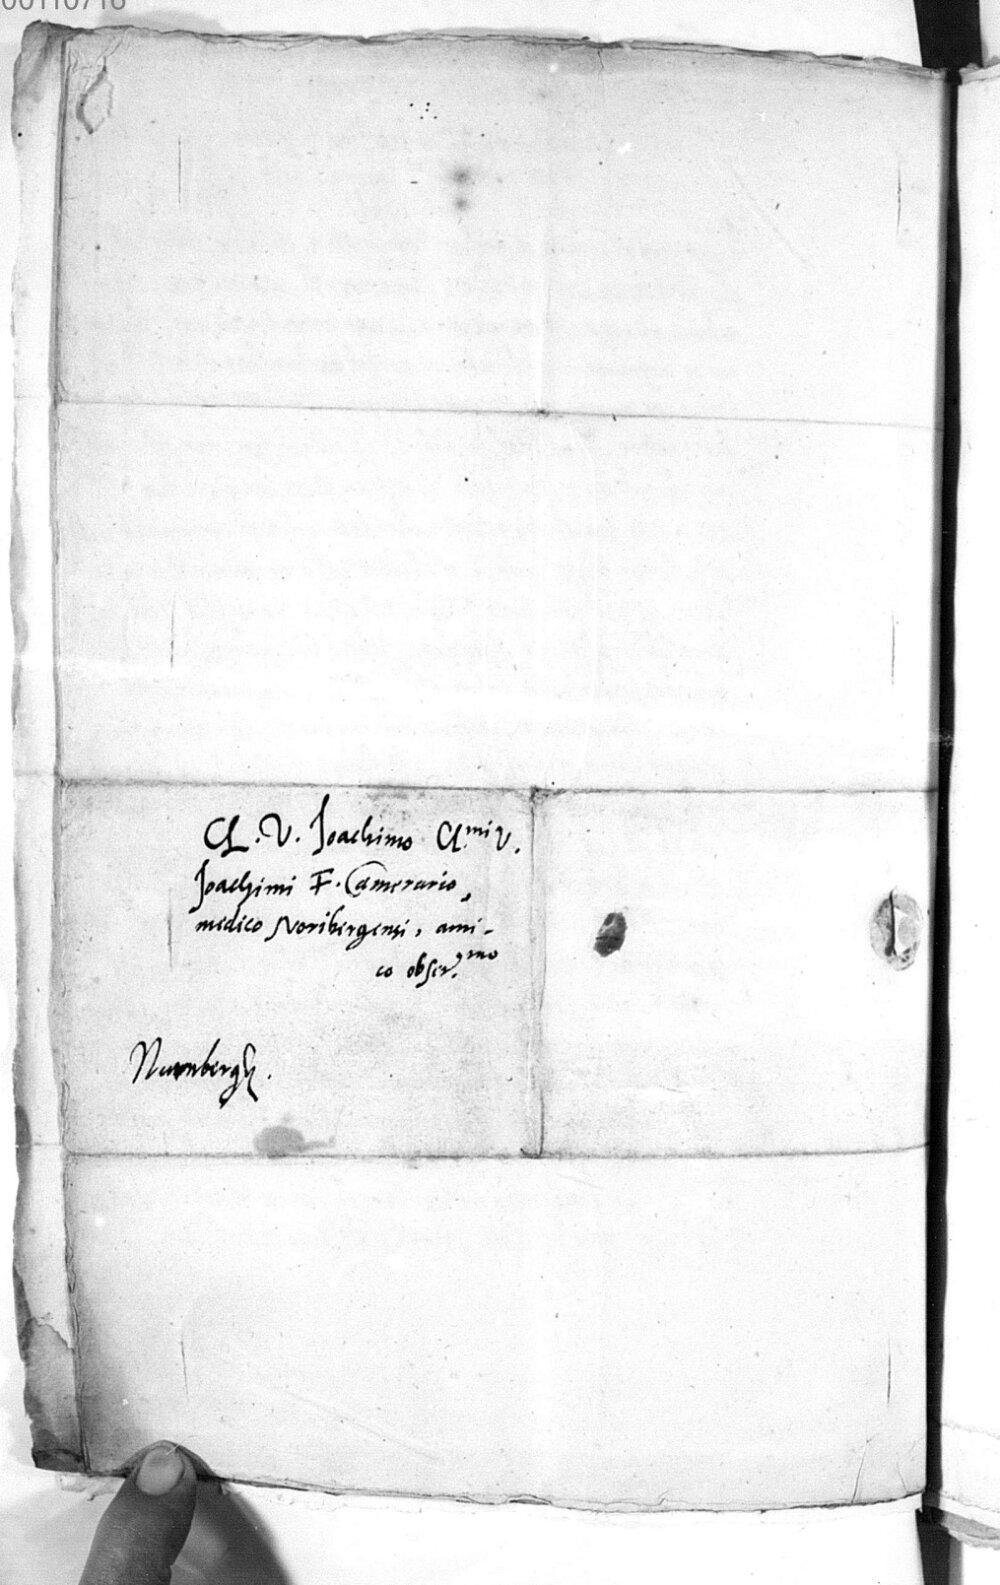 00110716
Cl. V. Joachimo Cl.mi V.
Joachimi F. Camerario,
medico Noribergensi, ami-
co obser.mo
Nurnbergk.